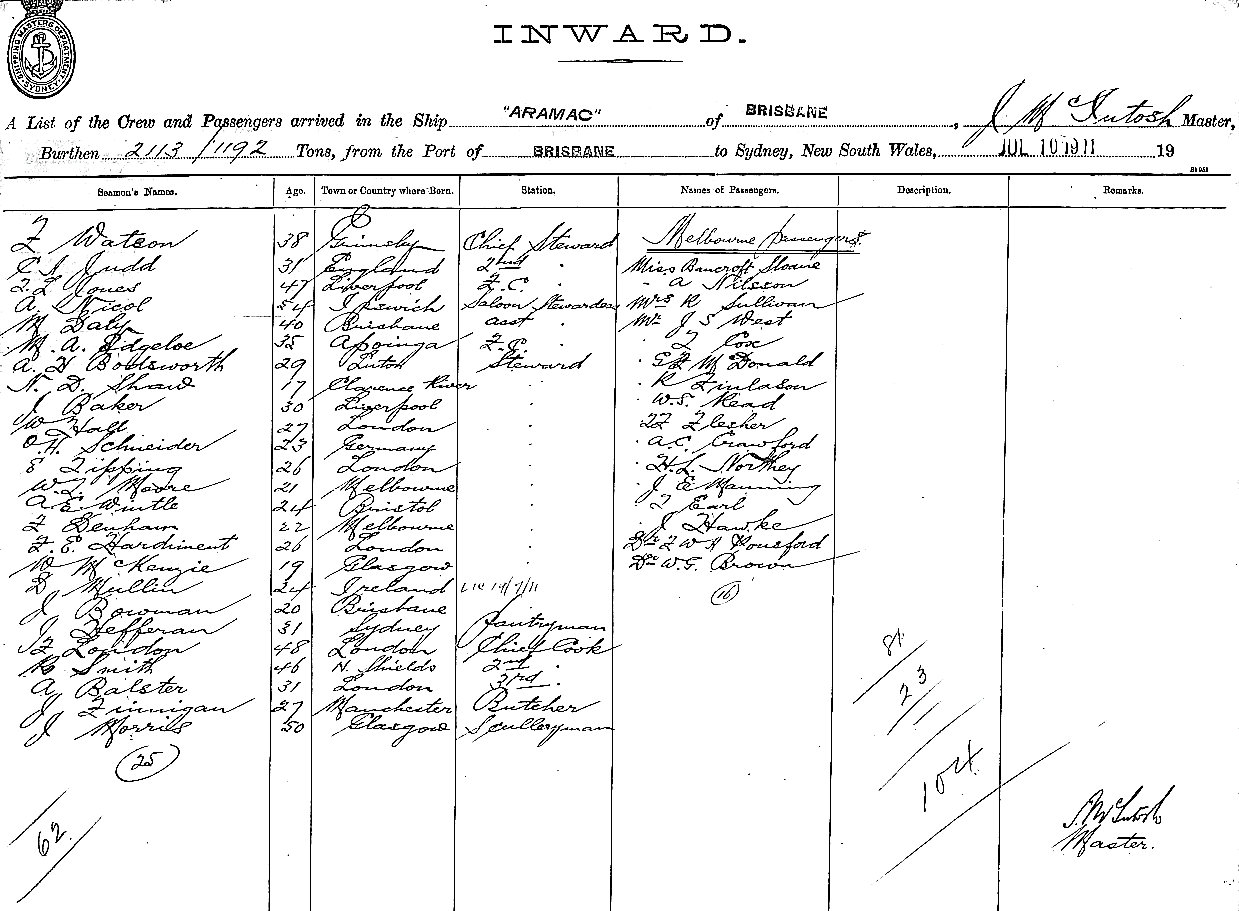 SHIPPING MASTERS DEPARTMENT SYDNEY
INWARD.
A List of the Crew and Passengers arrived in the Ship "ARAMAC" of BRISBANE, J McIntosh Master,
Burthen 2113/1192 Tons, from the Port of BRISBANE to Sydney, New South Wales, JUL 10 1911 19
Seamen's Names. Age. Town or Country where Born. Station. Names of Passengers. Description. Remarks.
F Watson 38 Grimsby Chief Steward Melbourne passengers.
C J Judd 31 England 2nd " Miss Bancroft Sloane
F. L Jones 47 Liverpool F. C. " A Nilsson
A. Nicol 54 Ipswich Saloon Stewardess Mrs R Sullivan
M Daly 40 Brisbane asst " Mr J S West
M. A. Edgeloe 35 F. C. " F Cox
A. V Bodsworth 29 Luton Steward " G F McDonald
N. D. Shaw 17 Clarence River " " R Finlason
J Baker 30 Liverpool " " W.S. Mead
W Hall 27 London " " Flesher
O.H. Schneider 23 Germany " " A.C. Crawford
E Tipping 26 London " " H.L. Northey
W.L. Moore 21 Melbourne " " J E Manning
A E Wintle 24 Bristol " " F Earl
F Denham 22 Melbourne " " J Hawke
F. E. Hardiment 26 London " Dr F W H Ponsford
W McKenzie 19 Glasgow " Dr W.G. Brown
D Mullin 24 Ireland (16)
J Bowman 20 Brisbane
J Hefferan 31 Sydney Pantryman
London 48 London Chief Cook
R Smith 46 N. Shields 2nd "
A Balster 31 London 3rd "
J Finnigan 27 Manchester Butcher
J Morris 50 Glasgow Sculleryman
(25)
81
23/1
104
62
J. McIntosh
Master.